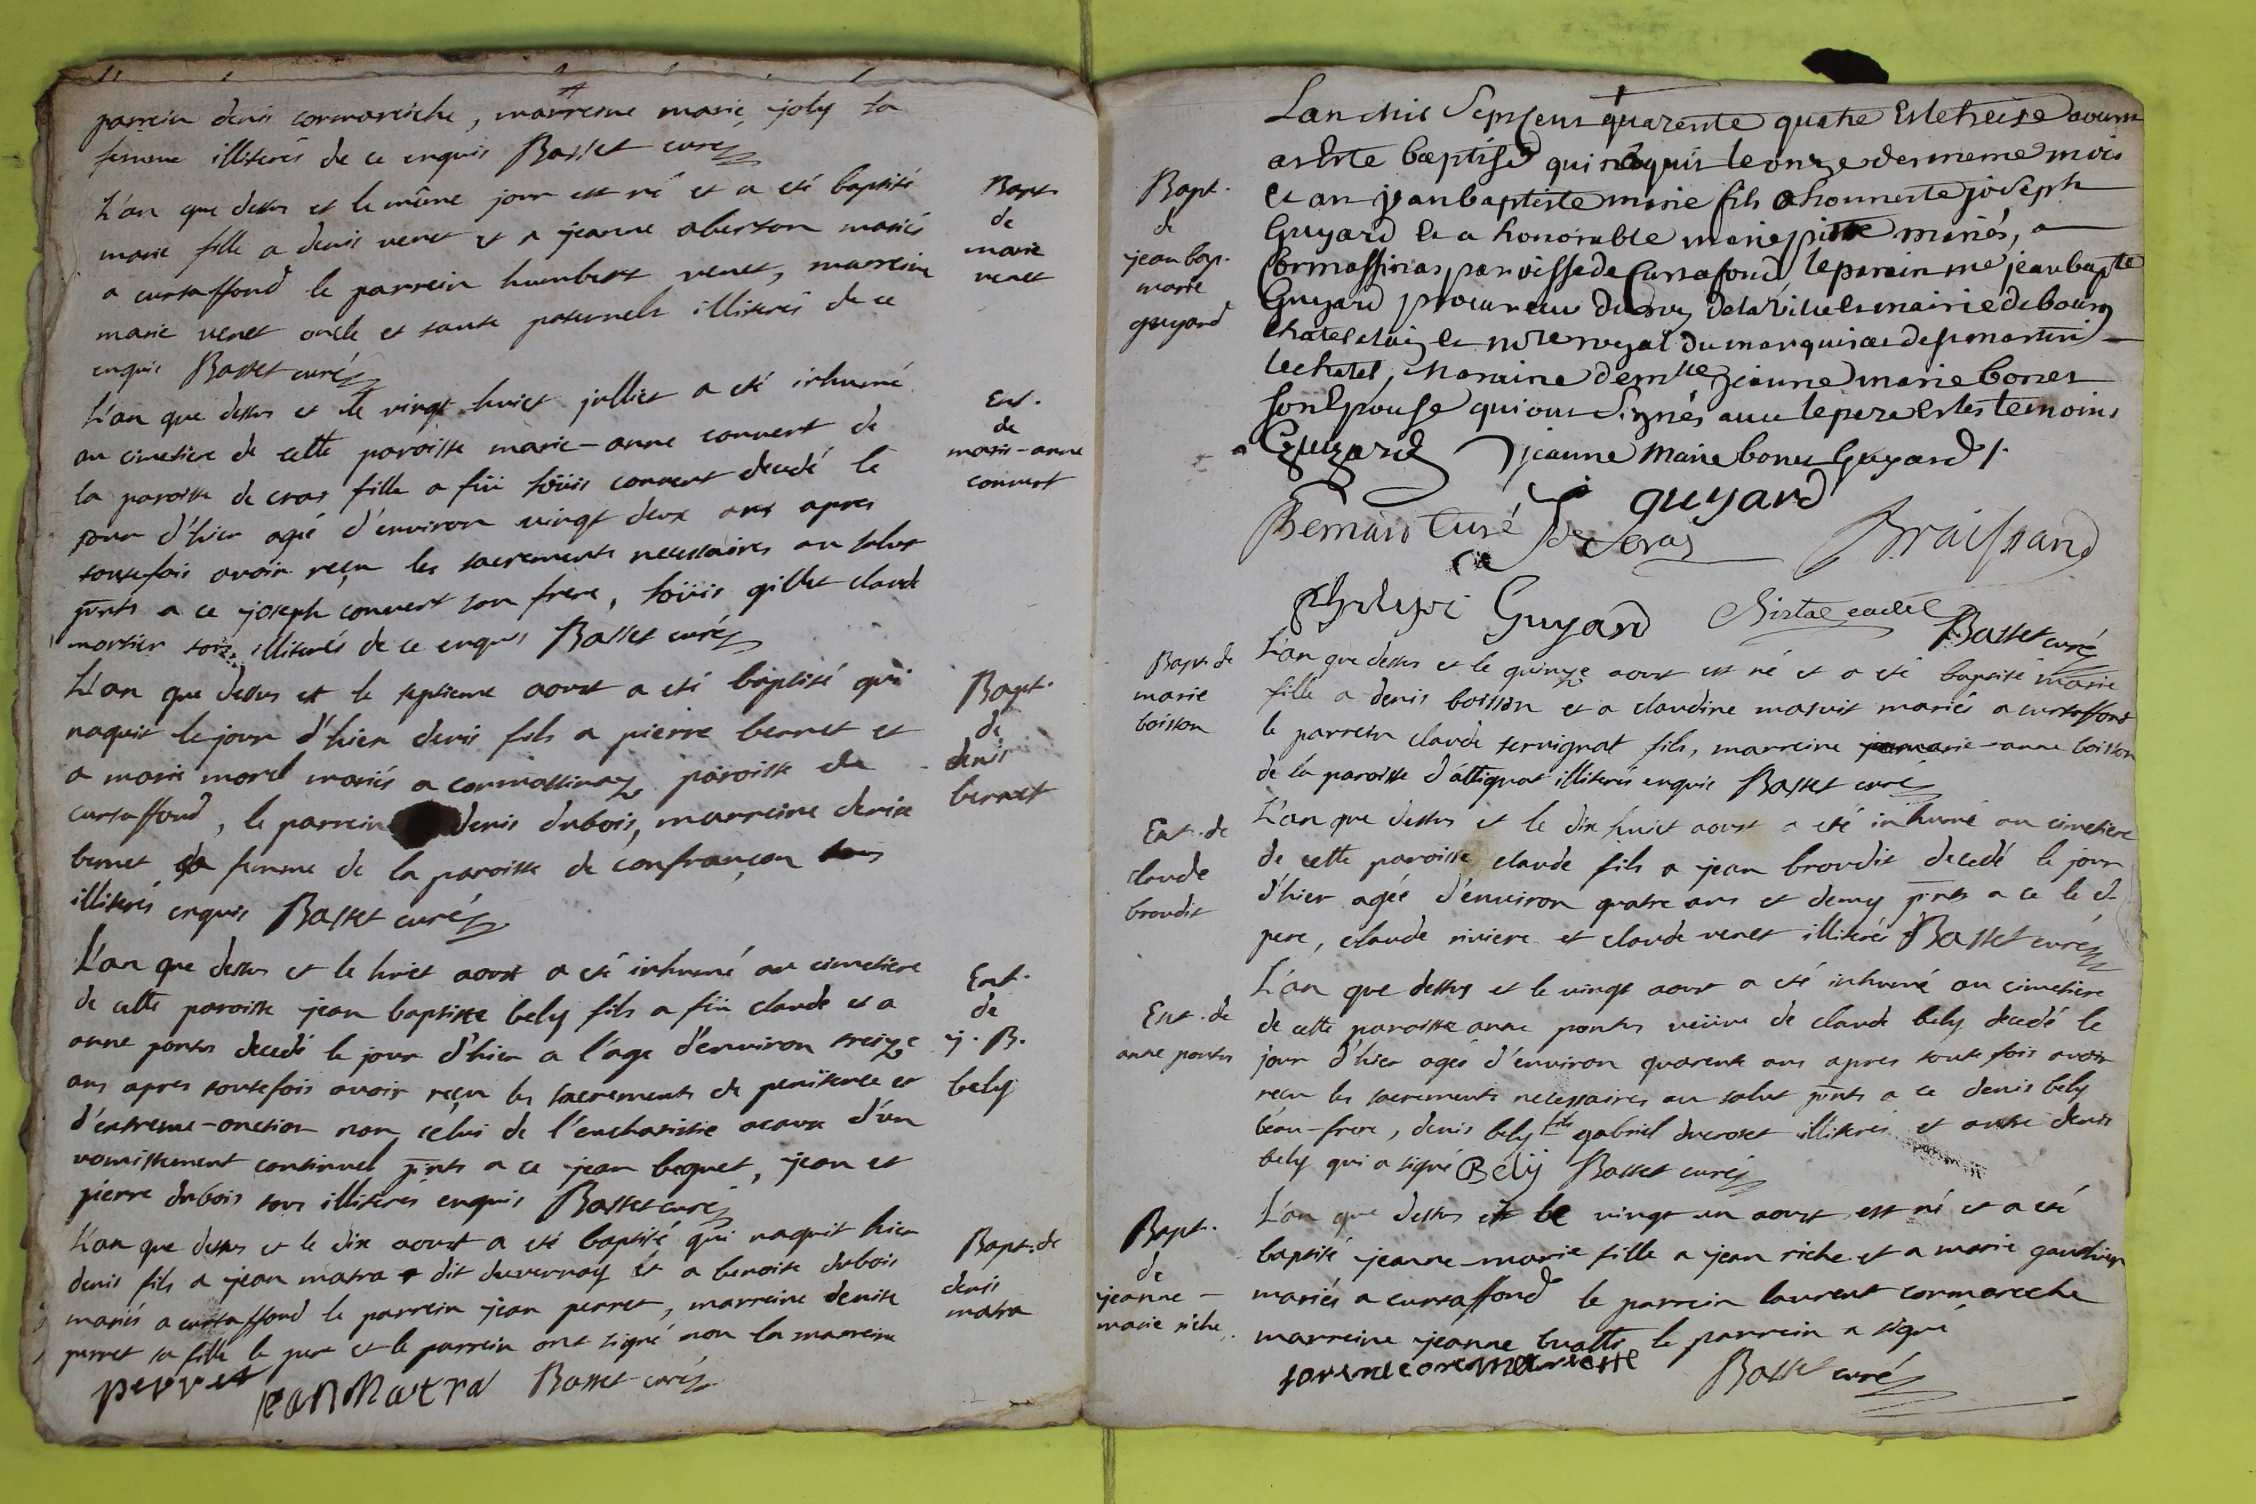 parrein denis cormareiche, marreine marie joly sa
femme illiterés de ce enquis Basset curé
L'an que dessus et le même jour est né et a eté baptisé
marie fille a denis venet et a jeanne aberson mariés
a curtaffond le parrein humbert venet, marreine
marie venet oncle et tante paternels illiterés de ce
enquis Basset curé
Bapt.
de
marie
venet
L'an que dessus et le vingt huict julliet a eté inhumé
au cimetiere de cette paroisse marie-anne convert de
la paroisse de cras fille a fũ loüis convert decedé le
jour d'hier agé d'environ vingt deux ans apres
toutefois avoir reçu les sacrements necessaires au salut
pr̄nts a ce joseph convert son frere, loüis gillet claude
mortier tous illiterés de ce enquis Basset curé
Ent.
de
marie-anne
convert
L'an que dessus et le septieme aoust a eté baptisé qui
naquit le jour d'hier denis fils a pierre bernet et
a marie morel mariés a cormassinaz paroisse de
curtaffond, le parrein denis dubois, marreine denise
bernet sa femme de la paroisse de confrançon
illiterés enquis Basset curé
Bapt.
de
denis
bernet
L'an que dessus et le huict aoust a eté inhumé au cimetiere
de cette paroisse jean baptiste bely fils a fũ claude et a
anne pontus decedé le jour d'hier a l'age d'environ treize
ans apres toutefois avoir reçu les sacrements de penitence et
d'extreme-onction non celui de l'eucharistie acause d'un
vomissement continuel pr̄nts a ce jean beguet, jean et
pierre dubois tous illiterés enquis Basset curé
Ent.
de
j. B.
bely
L'an que dessus et le dix aoust a eté baptisé qui naquit hier
denis fils a jean matra dit duvernay et a benoite dubois
mariés a curtaffond le parrein jean perret, marreine denise
perret sa fille le pere et le parrein ont signé non la marreine
perret jean Matra Basset curé
Bapt. de
denis
matra
Lan mil Sept Cent quarente quatre Et le treize aoust
a Este baptisé qui naquit le onze du meme mois
et an jean baptiste marie fils a honneste joseph
Guyard Et a honorable marie pitre mariés, a
Cormassinas, paroisse de Curtafond, le parain me jean bapte
Guyard procureur du roy de la Ville et mairie de bourg
chatelelain et notre royal du marquisat de st martin
le chatel, Maraine demlle jeanne marie bones
son Epouse qui ont Signés avec le pere Et les temoins
Guyard jeanne Marie bones Guyard
guyard
Bernard Curé de Cras Braissand
Guyard
Basset curé
Bapt.
de
jean bap.
marie
guyard
L'an que dessus et le quinze aoust est né et a eté baptisé marie
fille a denis boisson et a claudine masuit mariés a curtaffond
le parrein claude servignat fils, marreine marie-anne boisson
de la paroisse d'attignat illiterés enquis Basset curé
Bapt. de
marie
boisson
L'an que dessus et le dix huict aoust a eté inhumé au cimetiere
de cette paroisse claude fils a jean broudit decedé le jour
d'hier agée d'environ quatre ans et demy pr̄nts a ce le d.
pere, claude riviere et claude venet illiterés Basset curé
Ent. de
claude
broudit
L'an que dessus et le vingt aoust a eté inhumé au cimetiere
de cette paroisse anne pontus veüve de claude bely decedé le
jour d'hier agée d'environ quarente ans apres toutefois avoir
reçu les sacrements necessaires au salut pr̄nts a ce denis bely
beau-frere, denis bely fils gabriel ducroset illiterés et autre denis
bely qui a signé Bely Basset curé
Ent. de
anne pontus
L'an que dessus et le vingt un aoust est né et a eté
baptisé jeanne-marie fille a jean riche et a marie gauthier
mariés a curtaffond le parrein laurent cormareche
marreine jeanne buatte le parrein a signé
Basset curé
Bapt.
de
jeanne-
marie riche